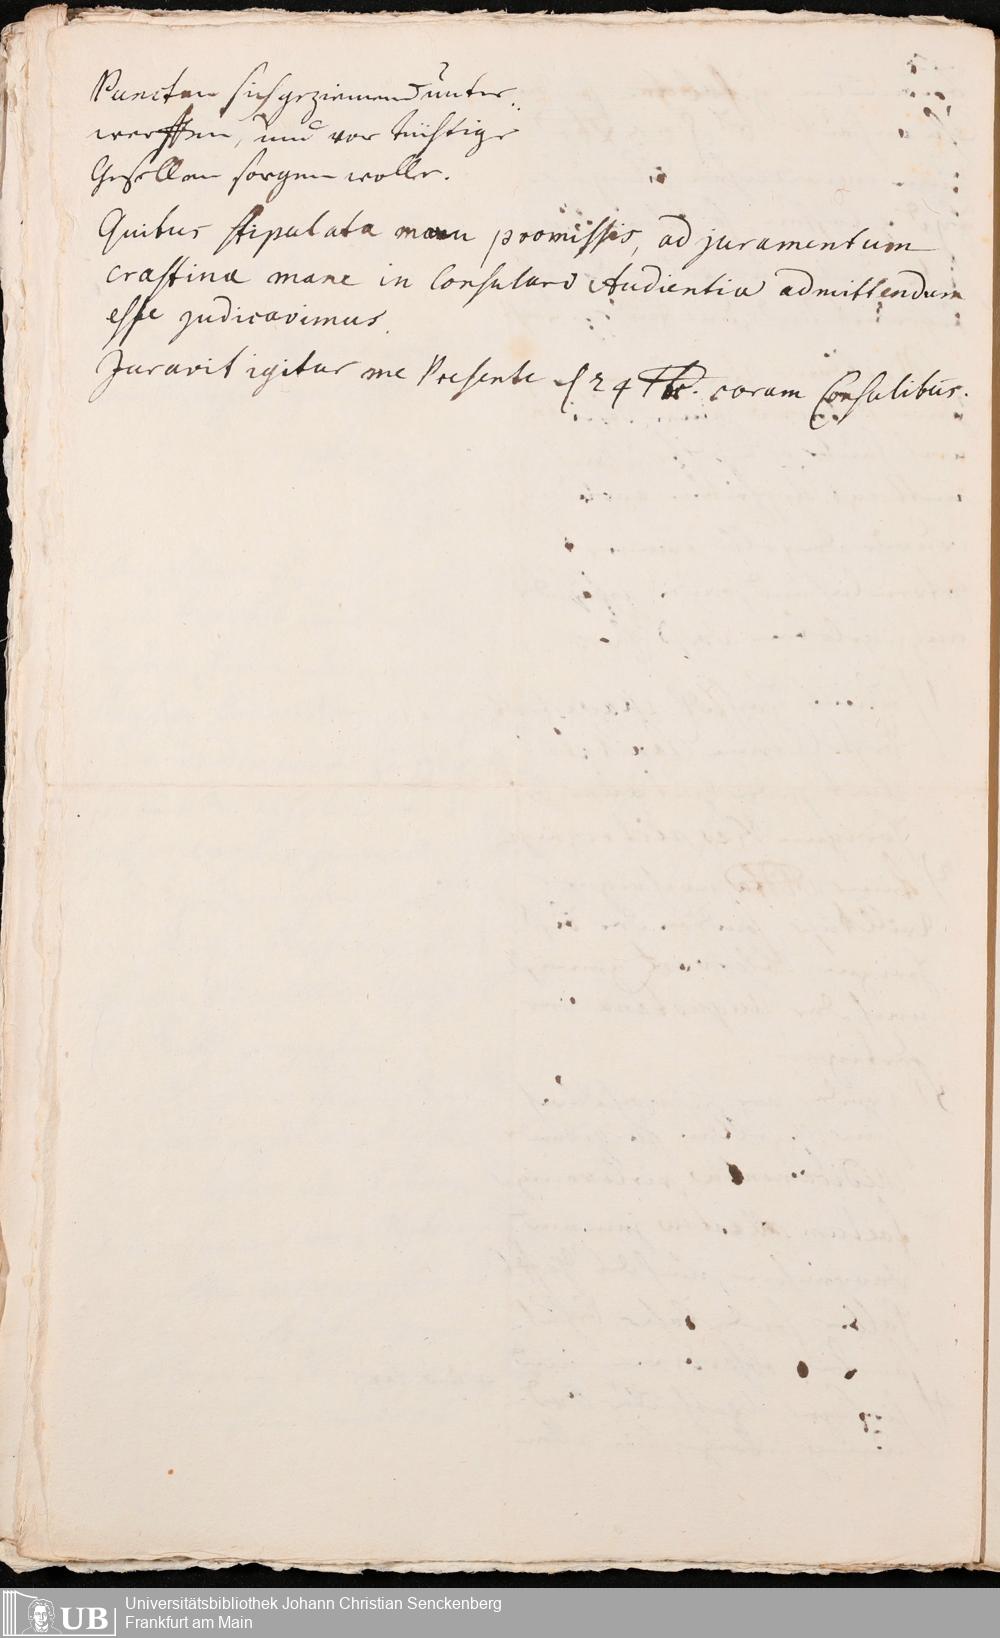 Puncten sich geziemend unter-
werffen, und vor tüchtige
Gesellen sorgen wolle.
Quibus stipulata manu promissis, ad juramentum
crastina mane in Consulari Audientia admittendum
esse judicavimus.
Juravit igitur me Presente d 24 coram Consulibus.
UB
Universitätsbibliothek Johann Christian Senckenberg
Frankfurt am Main